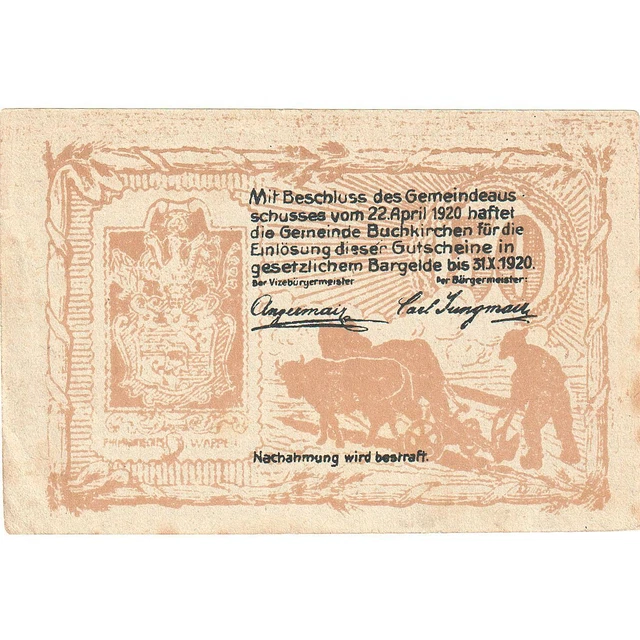 Mit Beschluss des Gemeindeaus-
schusses vom 22. April 1920 haftet
die Gemeinde Buchkirchen für die
Einlösung dieser Gutscheine in
gesetzlichem Bargelde bis 31.X.1920.
Der Vizebürgermeister Der Bürgermeister:
Angermair Carl Jungmair
WAPPEN
Nachahmung wird bestraft.